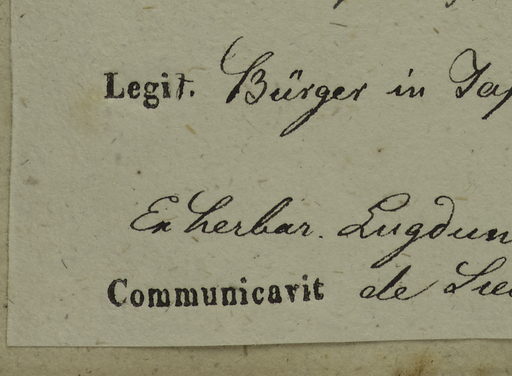 Legit. Bürger in Jap
Ex herbar. Lugdun
Communicavit de